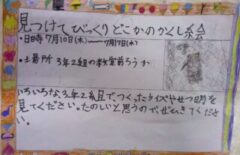 見つけてびっくりどこかのかくし絵会
・日時 7月10日(木)〜7月17日(水)
・場所 3年2組の教室前ろうか
いろいろな、3年2組でつくったクイズやせつ明を
見てください。たのしいと思うので、ぜひきてくださ
い。